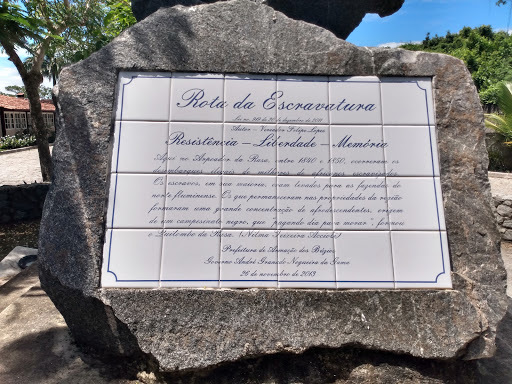 Rota da Escravatura
Lei no. 949 de 26 de dezembro de 2011
Autor - Vereador Felipe Lopes
Resistência – Liberdade – Memória
Aqui no Arpoador da Rasa, entre 1840 e 1850, ocorreram os
desembarques ilegais de milhares de africanos escravizados.
Os escravos, em sua maioria, eram levados para as fazendas do
norte fluminense. Os que permaneceram nas propriedades da região
formaram uma grande concentração de afrodescendentes, origem
de um campesinato negro, que "pagando dia para morar", formou
o Quilombo da Rasa. (Nilma Teixeira Accioli)
Prefeitura de Armação dos Búzios
Governo André Granado Nogueira da Gama
26 de novembro de 2013